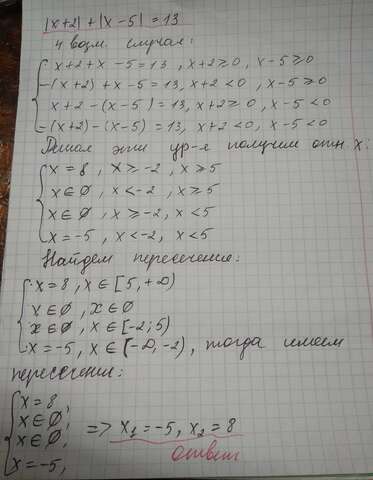 |x+2|+|x-5|=13
4 возм. случая:
x+2+x-5=13, x+2≥0, x-5≥0
-(x+2)+x-5=13, x+2<0, x-5≥0
x+2-(x-5)=13, x+2≥0, x-5<0
-(x+2)-(x-5)=13, x+2<0, x-5<0
Решая эти ур-я получим отн. x:
x=8, x≥-2, x≥5
x∈∅, x<-2, x≥5
x∈∅, x≥-2, x<5
x=-5, x<-2, x<5
Найдем пересечение:
x=8, x∈[5,+∞)
x∈∅, x∈∅
x∈∅, x∈[-2;5)
x=-5, x∈(-∞,-2), тогда имеем
пересечения:
x=8
x∈∅,
x∈∅, => x₁=-5, x₂=8
x=-5,
ответ